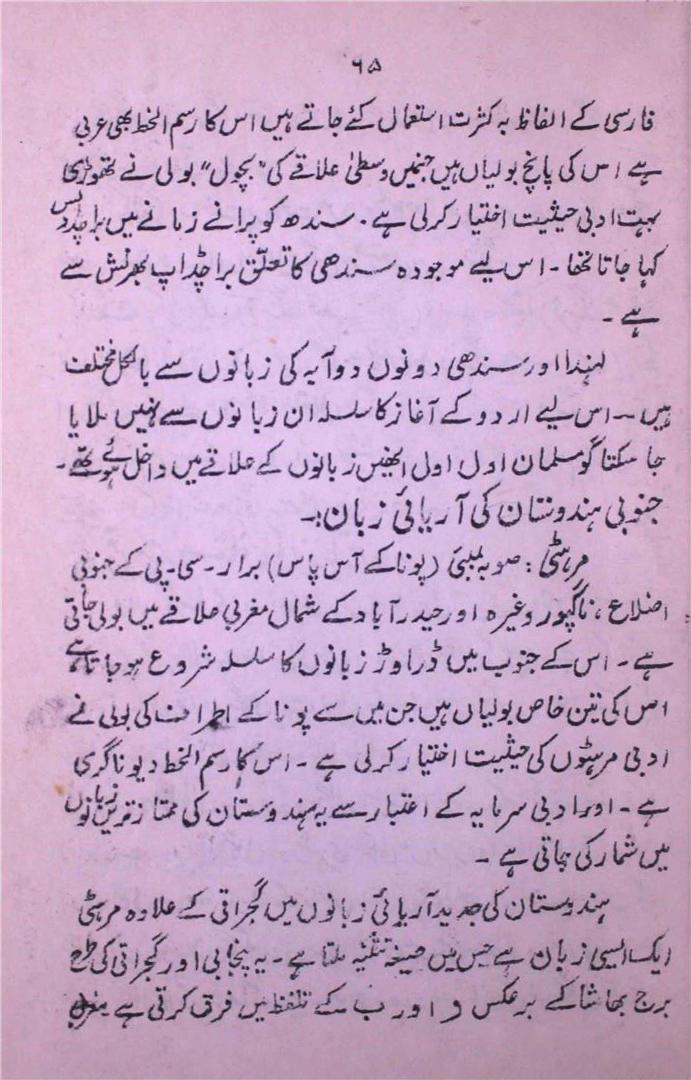 ۶۵
فارسی کے الفاظ بہ کثرت استعمال کئے جاتے ہیں اس کا رسم الخط بھی عربی
ہے اس کی پانچ بولیاں ہیں جنمیں وسطیٰ علاقے کی "بچولی" بولی نے تھوڑی
بہت ادبی حیثیت اختیار کرلی ہے۔ سندھ کو پرانے زمانے میں براچڈدیس
کہا جاتا تھا۔ اس لیے موجودہ سندھی کا تعلّق براچڈاپ بھرنش سے
ہے۔
لہندا اور سندھی دونوں دوآبہ کی زبانوں سے بالکل مختلف
ہیں۔ اس لیے اردو کے آغاز کا سلسلہ ان زبانوں سے نہیں ملایا
جا سکتا گو مسلمان اول اول انھیں زبانوں کے علاقے میں داخل ہوئے تھے۔
جنوبی ہندوستان کی آریائی زبان:۔
مرہٹی: صوبہ بمبئی (پونا کے آس پاس) برار۔سی۔پی کے جنوبی
اضلاع، ناگپور وغیرہ اور حیدرآباد کے شمال مغربی علاقے میں بولی جاتی
ہے۔ اس کے جنوب میں ڈراوڑ زبانوں کا سلسلہ شروع ہو جاتا ہے
اس کی تین خاص بولیاں ہیں جن میں سے پونا کے اطراف کی بولی نے
ادبی مرہٹوں کی حیثیت اختیار کرلی ہے۔ اس کا رسم الخط دیوناگری
ہے۔ اور ادبی سرمایہ کے اعتبار سے یہ ہندوستان کی ممتاز ترین زبانوں
میں شمار کی جاتی ہے۔
ہندوستان کی جدید آریائی زبانوں میں گجراتی کے علاوہ مرہٹی
ایک ایسی زبان ہے جس میں صیغہ تثنیہ ملتا ہے۔ یہ پنجابی اور گجراتی کی طرح
برج بھاشا کے برعکس و اور ب کے تلفظ میں فرق کرتی ہے